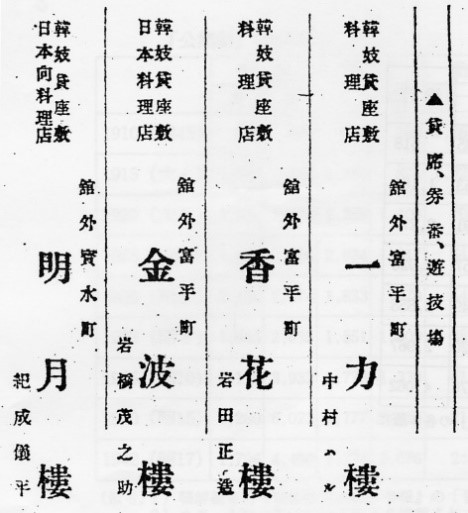 ▲貸席、券番、遊技場
韓妓貸座敷
料理店
舘外富平町
一力樓
中村ハル
韓妓貸座敷
料理店
舘外富平町
香花樓
岩田正造
韓妓貸座敷
日本料理店
舘外富平町
金波樓
岩橋茂之助
韓妓貸座敷
日本向料理店
舘外寳水町
明月樓
紀成儀平